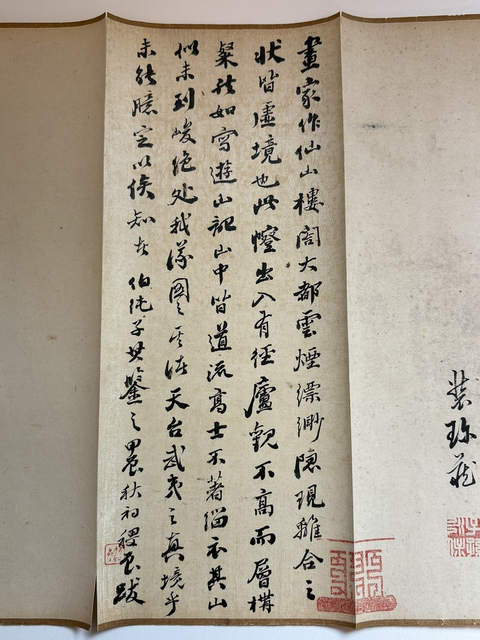 珍藏
畫家作仙山樓閣大都雲煙縹緲隱現離合之
狀皆虛境也此幛出入有徑廬觀不高而層構
粲然如寫遊山記山中皆道流高士不著緇衣其山
似未到峻絕処我儀圖之其諸天台武夷之真境乎
未能臆定以俟知者伯純子其鑒之甲辰秋初跋